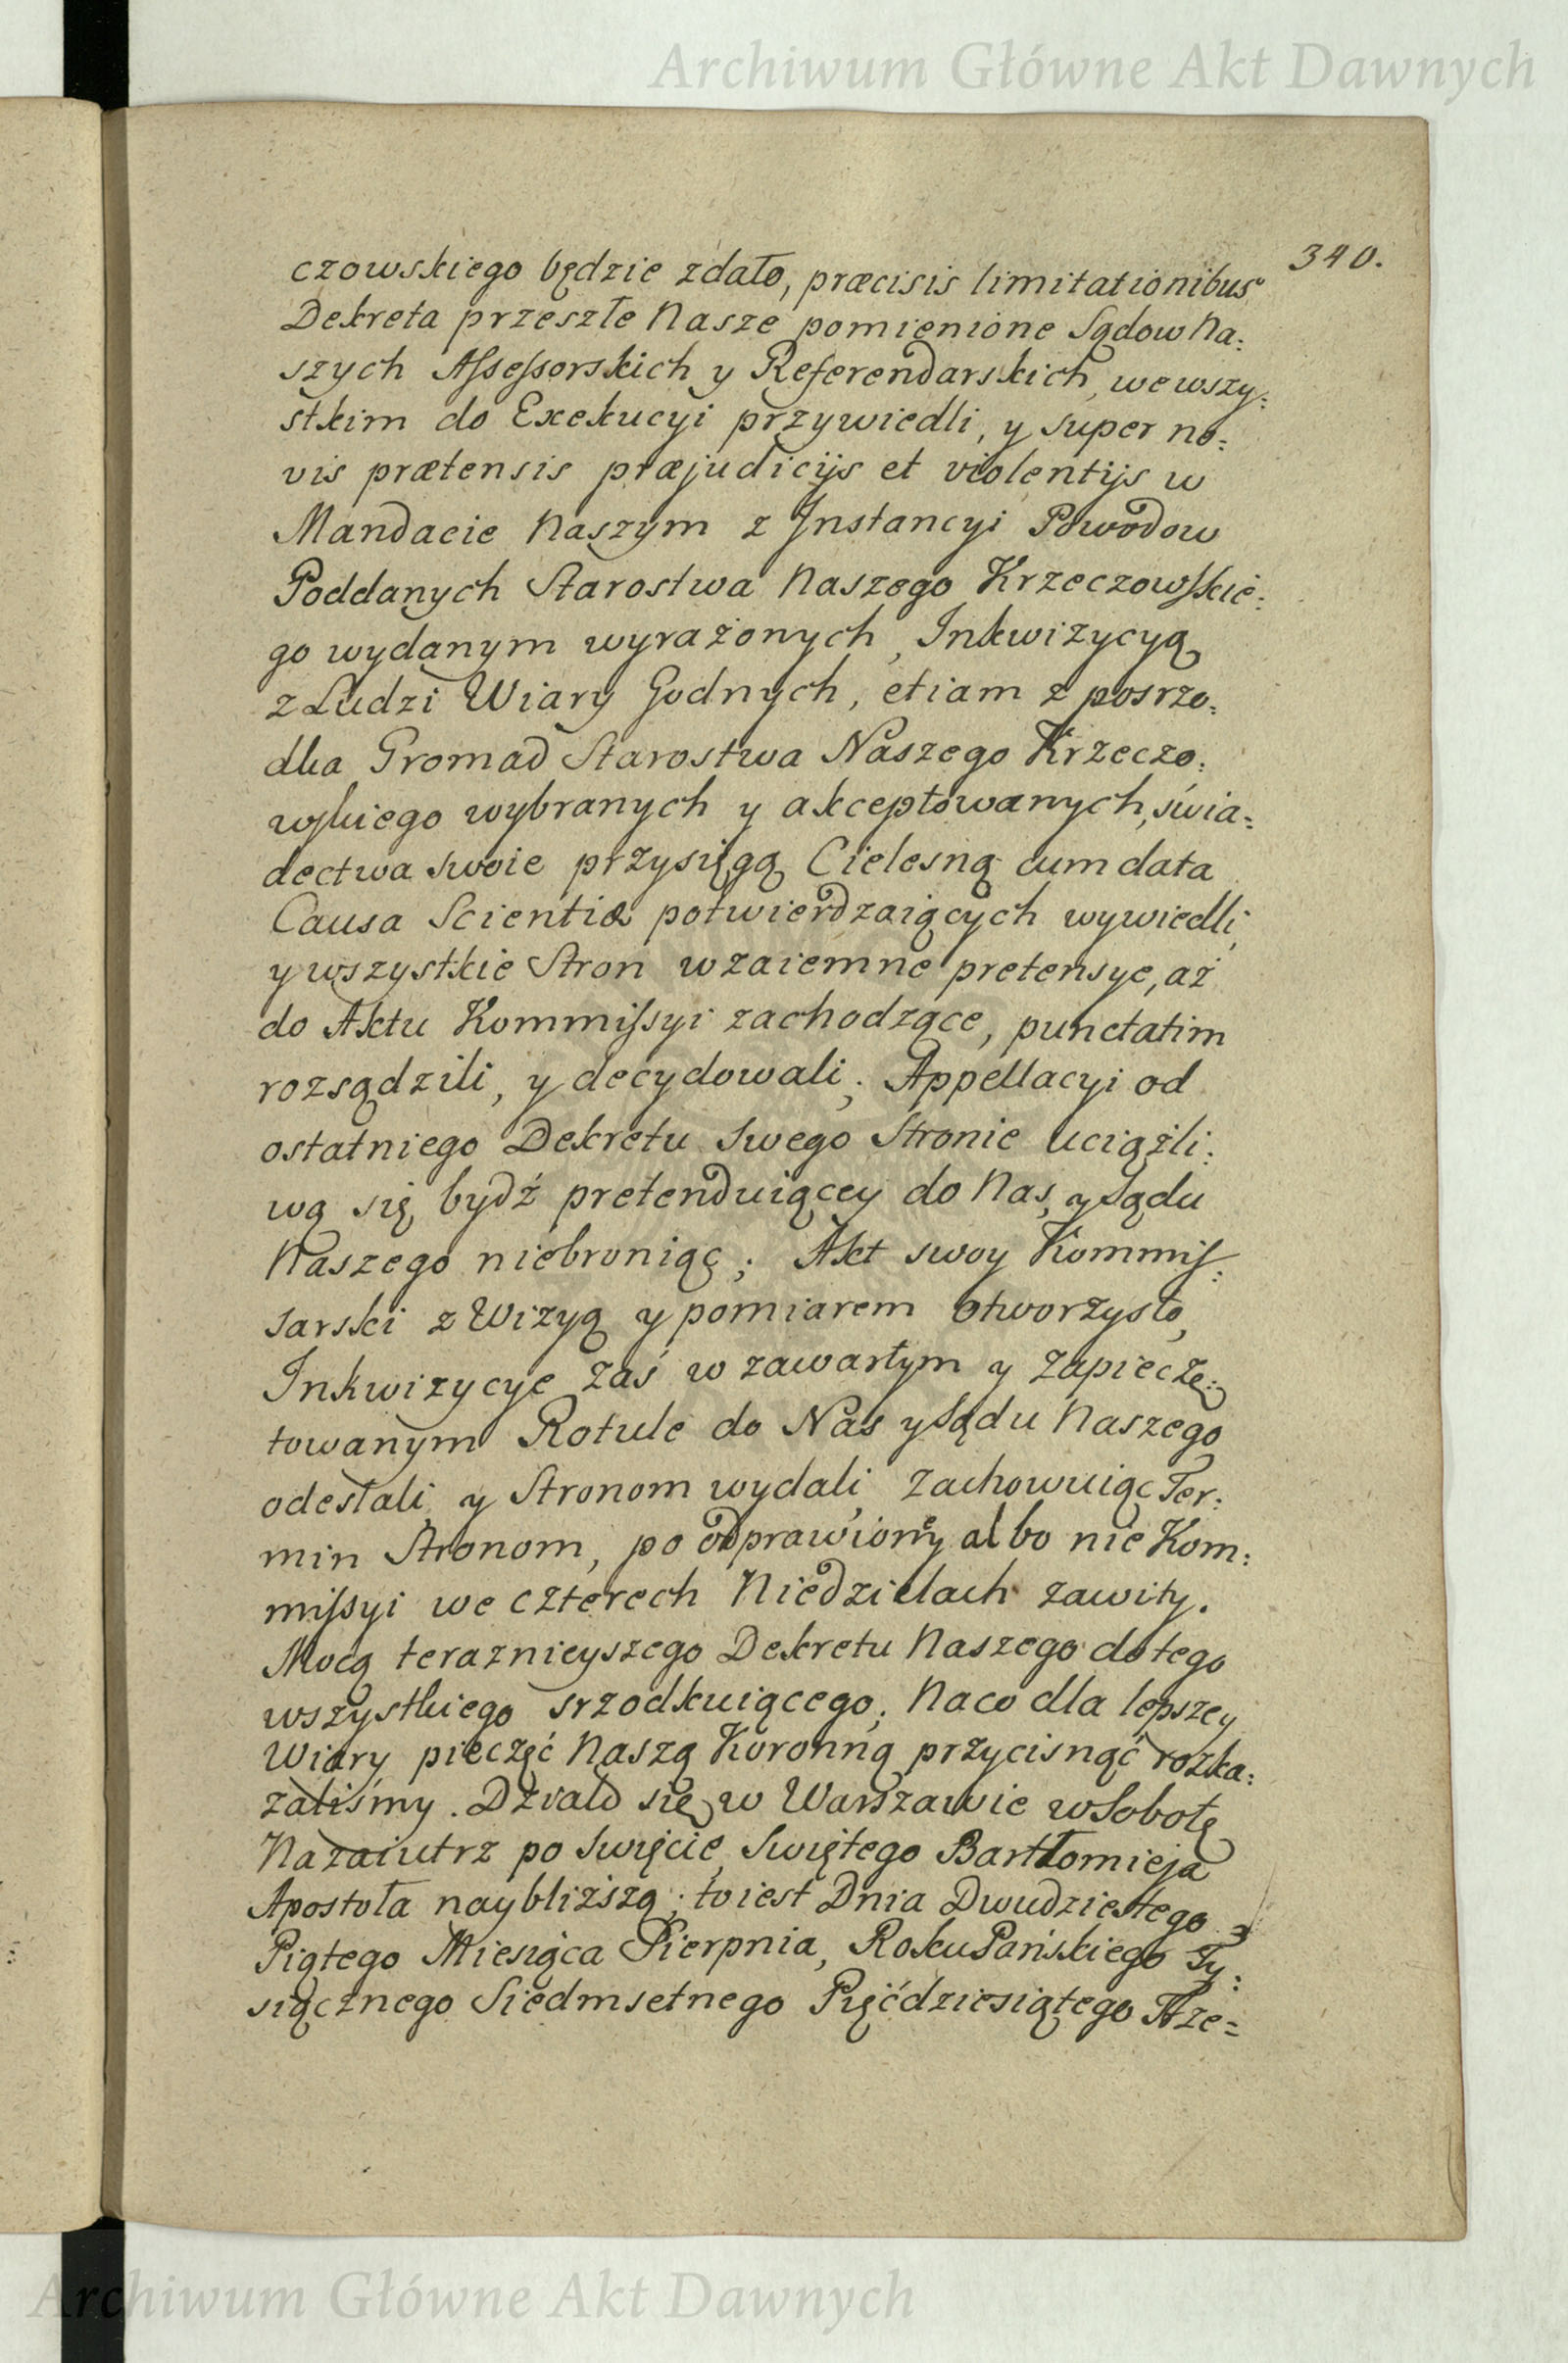 Archiwum Główne Akt Dawnych
340.
czowskiego będzie zdało, præcisis limitationibus
Dekreta przeszłe Nasze pomienione Sądow Na:
szych Aſseſsorskich y Referendarskich, we wszy:
stkim do Exekucyi przywiedli, y super no:
vis prætensis præjudicijs et violentijs w
Mandacie Naszym z Jnstancyi Powodow
Poddanych Starostwa Naszego Krzeczowſkie:
go wydanym wyrażonych, Inkwizycyą
z Ludzi Wiary Godnych, etiam z posrzo:
dka Gromad Starostwa Naszego Krzeczo:
wſkiego wybranych y akceptowanych, świa:
dectwa swoie przysięgą Cielesną cum data
Causa Scientiæ potwierdzaiących wywiedli,
y wszystkie Stron wzaiemne pretensye, aż
do Aktu Kommiſsyi zachodzące, punctatim
rozsądzili, y decydowali; Appellacyi od
ostatniego Dekretu swego Stronie uciążli:
wą się bydź pretenduiącey do Nas, y Sądu
Naszego niebroniąc; Akt swoy Kommiſ:
sarski z Wizyą y pomiarem otworzysto,
Inkwizycye zaś w zawartym y zapieczę:
towanym Rotule do Nas y Sądu Naszego
odesłali, y Stronom wydali, zachowuiąc Ter:
min Stronom, po odprawioney albo nie Kom:
miſsyi we czterech Niedzielach zawity.
Mocą teraznieyszego Dekretu Naszego do tego
wszystkiego srzodkuiącego; Na co dla lepszey
Wiary pieczęć Naszą Koronną przycisnąć rozka:
zaliśmy. Działo się w Warszawie w Sobotę
Nazaiutrz po Swięcie Swiętego Bartłomieja
Apostoła naybliższą; to iest Dnia Dwudziestego
Piątego Miesiąca Sierpnia, Roku Pańskiego Ty:
siącznego Siedmsetnego Pięćdziesiątego Trze=
Archiwum Główne Akt Dawnych